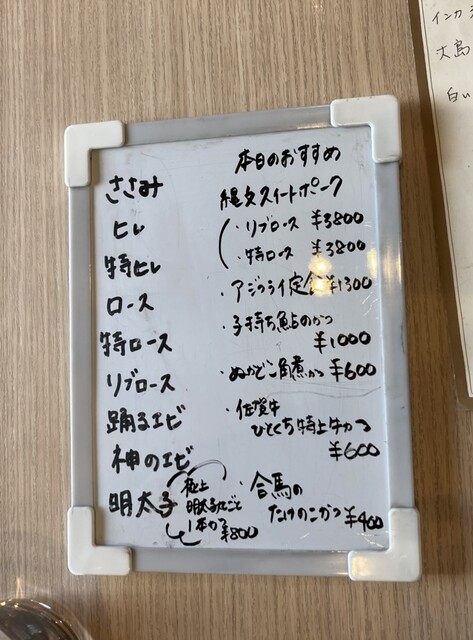 ささみ
ヒレ
特ヒレ
ロース
特ロース
リブロース
踊るエビ
神のエビ
明太子
極上
明太子丸ごと
1本のつ
¥800
本日のおすすめ
縄文スイートポーク
・リブロース ¥3800
・特ロース ¥3800
・アジフライ定食¥1300
・子持ち鮎のかつ
¥1000
・ぬかどこ角煮かつ ¥600
・佐賀牛
ひとくち特上牛かつ
¥600
・合馬の
たけのこかつ¥400
インカ
大島
白い